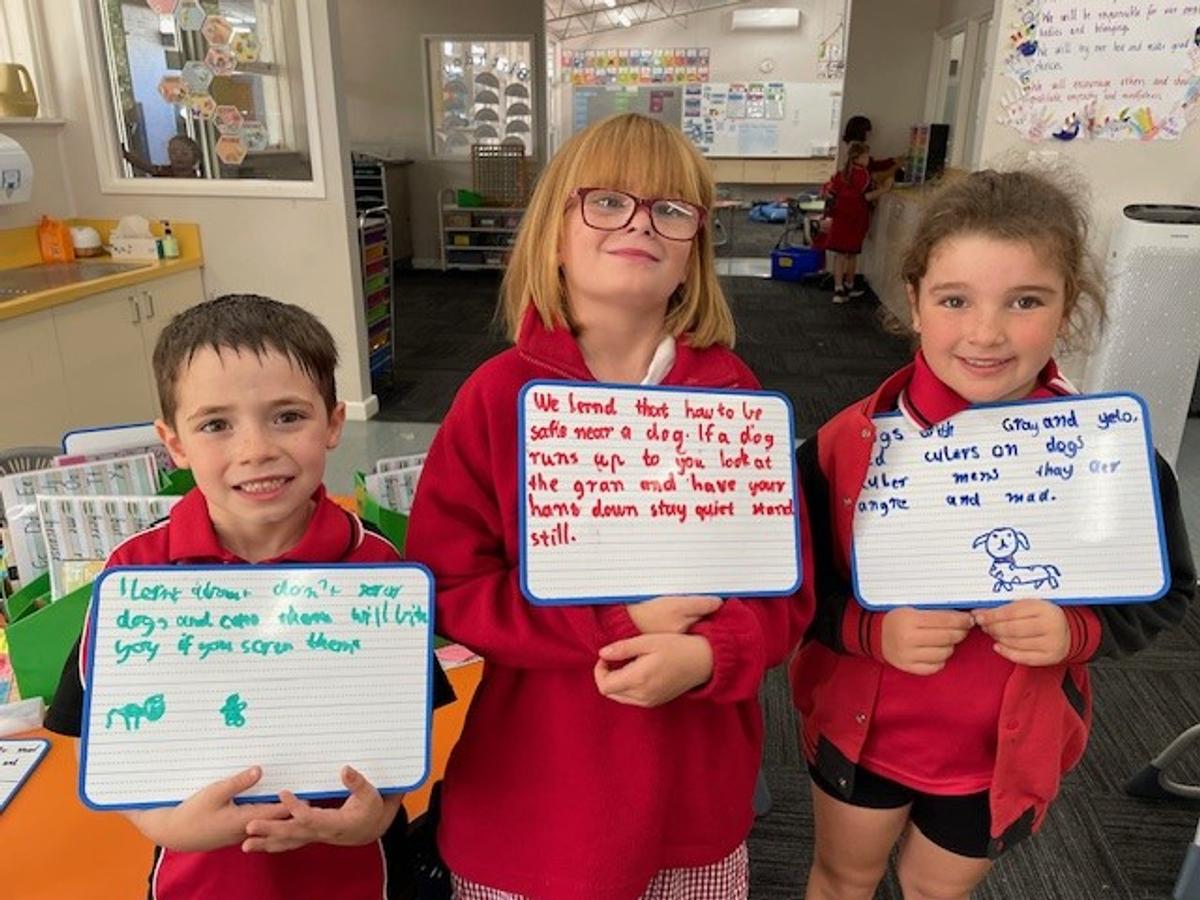 We will be responsible for our own
bodies and belongings.
We will try our best and make good
choices.
We will encourage others and show
We lernd that how to be
safe near a dog. If a dog
runs up to you look at
the gran and have your
hans down stay quiet stand
still.
gs with Gray and yelo,
culers on dogs
culer mens thay aer
angre and mad.
I lernt about don't scar
dogs and cats them will bite
yoy if you scarn them